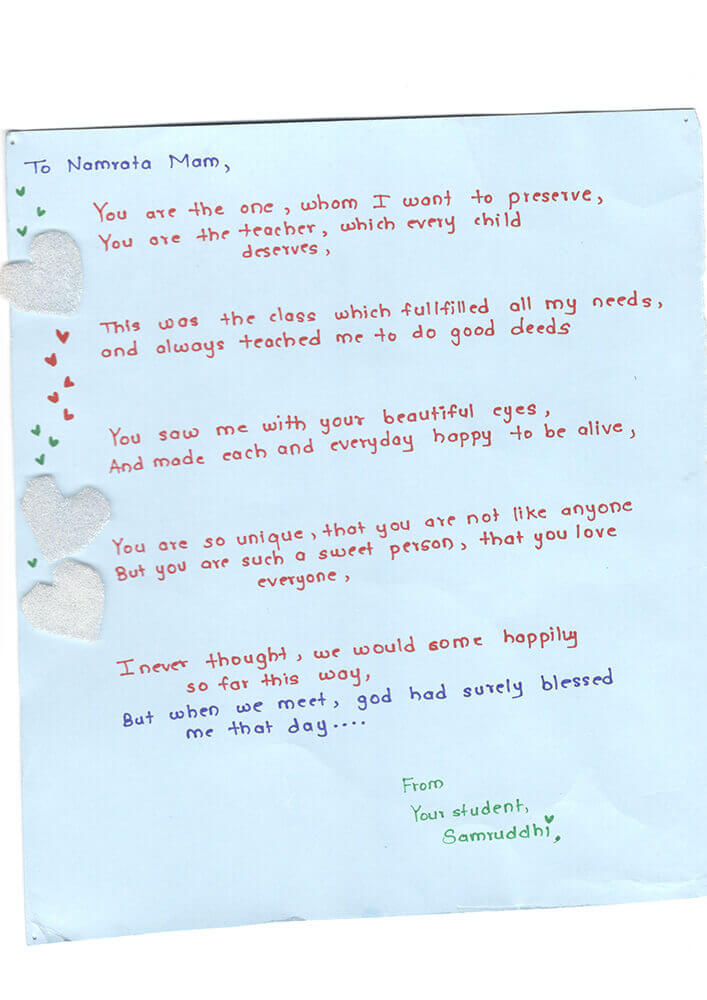 To Namrata Mam,
You are the one, whom I want to preserve,
You are the teacher, which every child
deserves,
This was the class which fullfilled all my needs,
and always teached me to do good deeds
You saw me with your beautiful eyes,
And made each and everyday happy to be alive,
You are so unique, that you are not like anyone
But you are such a sweet person, that you love
everyone,
I never thought, we would some happily
so far this way,
But when we meet, god had surely blessed
me that day....
From
Your student,
Samruddhi,